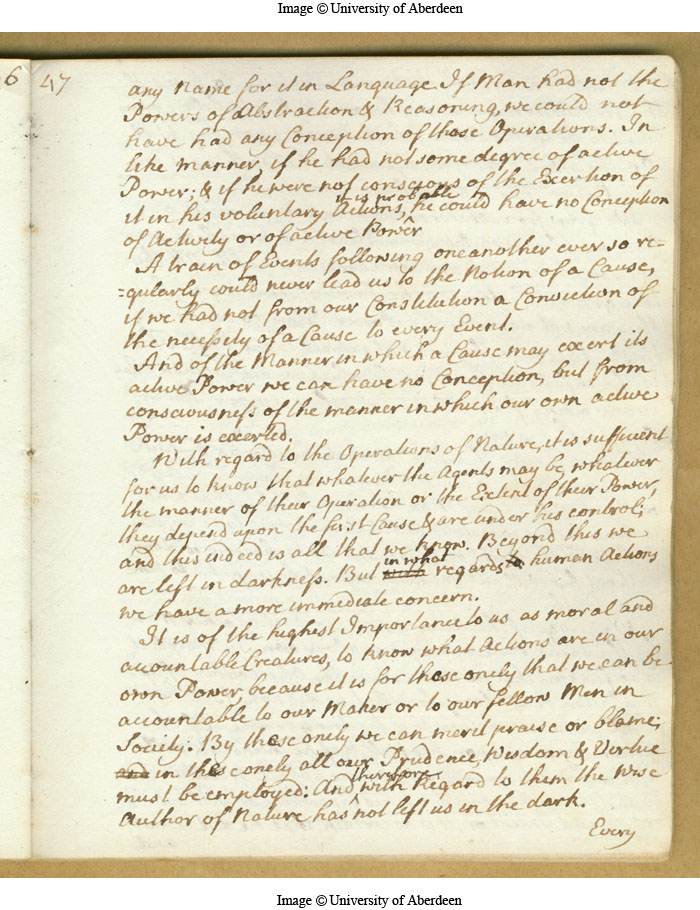 Image © University of Aberdeen
6
47
any Name for it in Language. If Man had not the
Powers of Abstraction & Reasoning, we could not
have had any Conception of those Operations. In
like manner, if he had not some degree of active
Power; & if he were not conscious of the Exertion of
it is probable
it in his voluntary Actions, he could have no Conception
of Activity or of active Power
A train of Events following one another ever so re-
=gularly could never lead us to the Notion of a Cause,
if we had not from our Constitution a Conviction of
the necessity of a Cause to every Event.
And of the Manner in which a Cause may exert its
active Power we can have no Conception, but from
consciousness of the manner in which our own active
Power is exerted.
With regard to the Operations of Nature, it is sufficient
for us to know that whatever the Agents may be, whatever
the manner of their Operation or the Extent of their Power,
they depend upon the first Cause & are under his control;
and this indeed is all that we know. Beyond this we
in what
are left in darkness. But with regards to human Actions
we have a more immediate concern.
It is of the highest Importance to us as moral and
accountable Creatures, to know what Actions are in our
own Power because it is for these onely that we can be
accountable to our Maker or to our fellow Men in
Society: By these onely we can merit praise or blame;
and in these onely all our Prudence, Wisdom & Vertue
therefore
must be employed: And, with Regard to them the Wise
Author of Nature has not left us in the dark.
Every
Image © University of Aberdeen